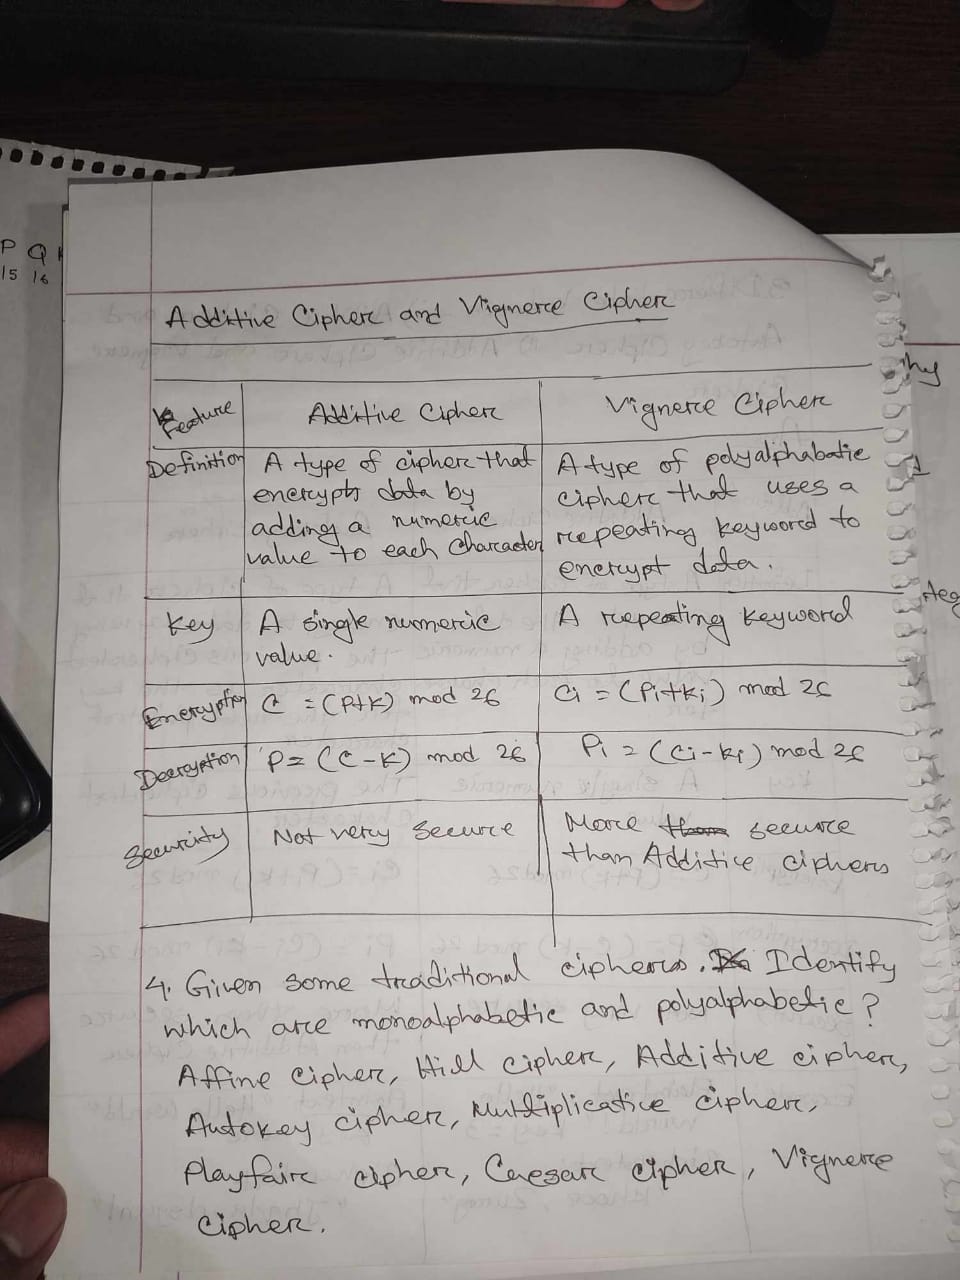 P Q
15 16
Additive Cipher and Vignere Cipher
Feature
Additive Cipher
Vignere Cipher
Definition
A type of cipher that
encrypts data by
adding a numeric
value to each character
A type of polyalphabatic
cipher that uses a
repeating keyword to
encrypt data.
Key
A single numeric
value.
A repeating keyword
Encryption
C = (P+K) mod 26
Ci = (Pi+ki) mod 26
Decryption
P = (C-K) mod 26
Pi = (Ci-ki) mod 26
Security
Not very secure
More secure
than Additive ciphers
4. Given some traditional ciphers. Identify
which are monoalphabetic and polyalphabetic?
Affine cipher, Hill cipher, Additive cipher,
Autokey cipher, Multiplicative cipher,
Playfair cipher, Caesar cipher, Vignere
cipher.